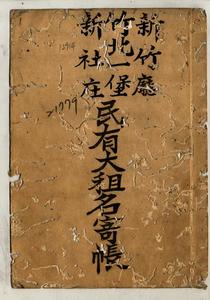 新竹廳
竹北一堡
新社庄
民有大租名寄帳